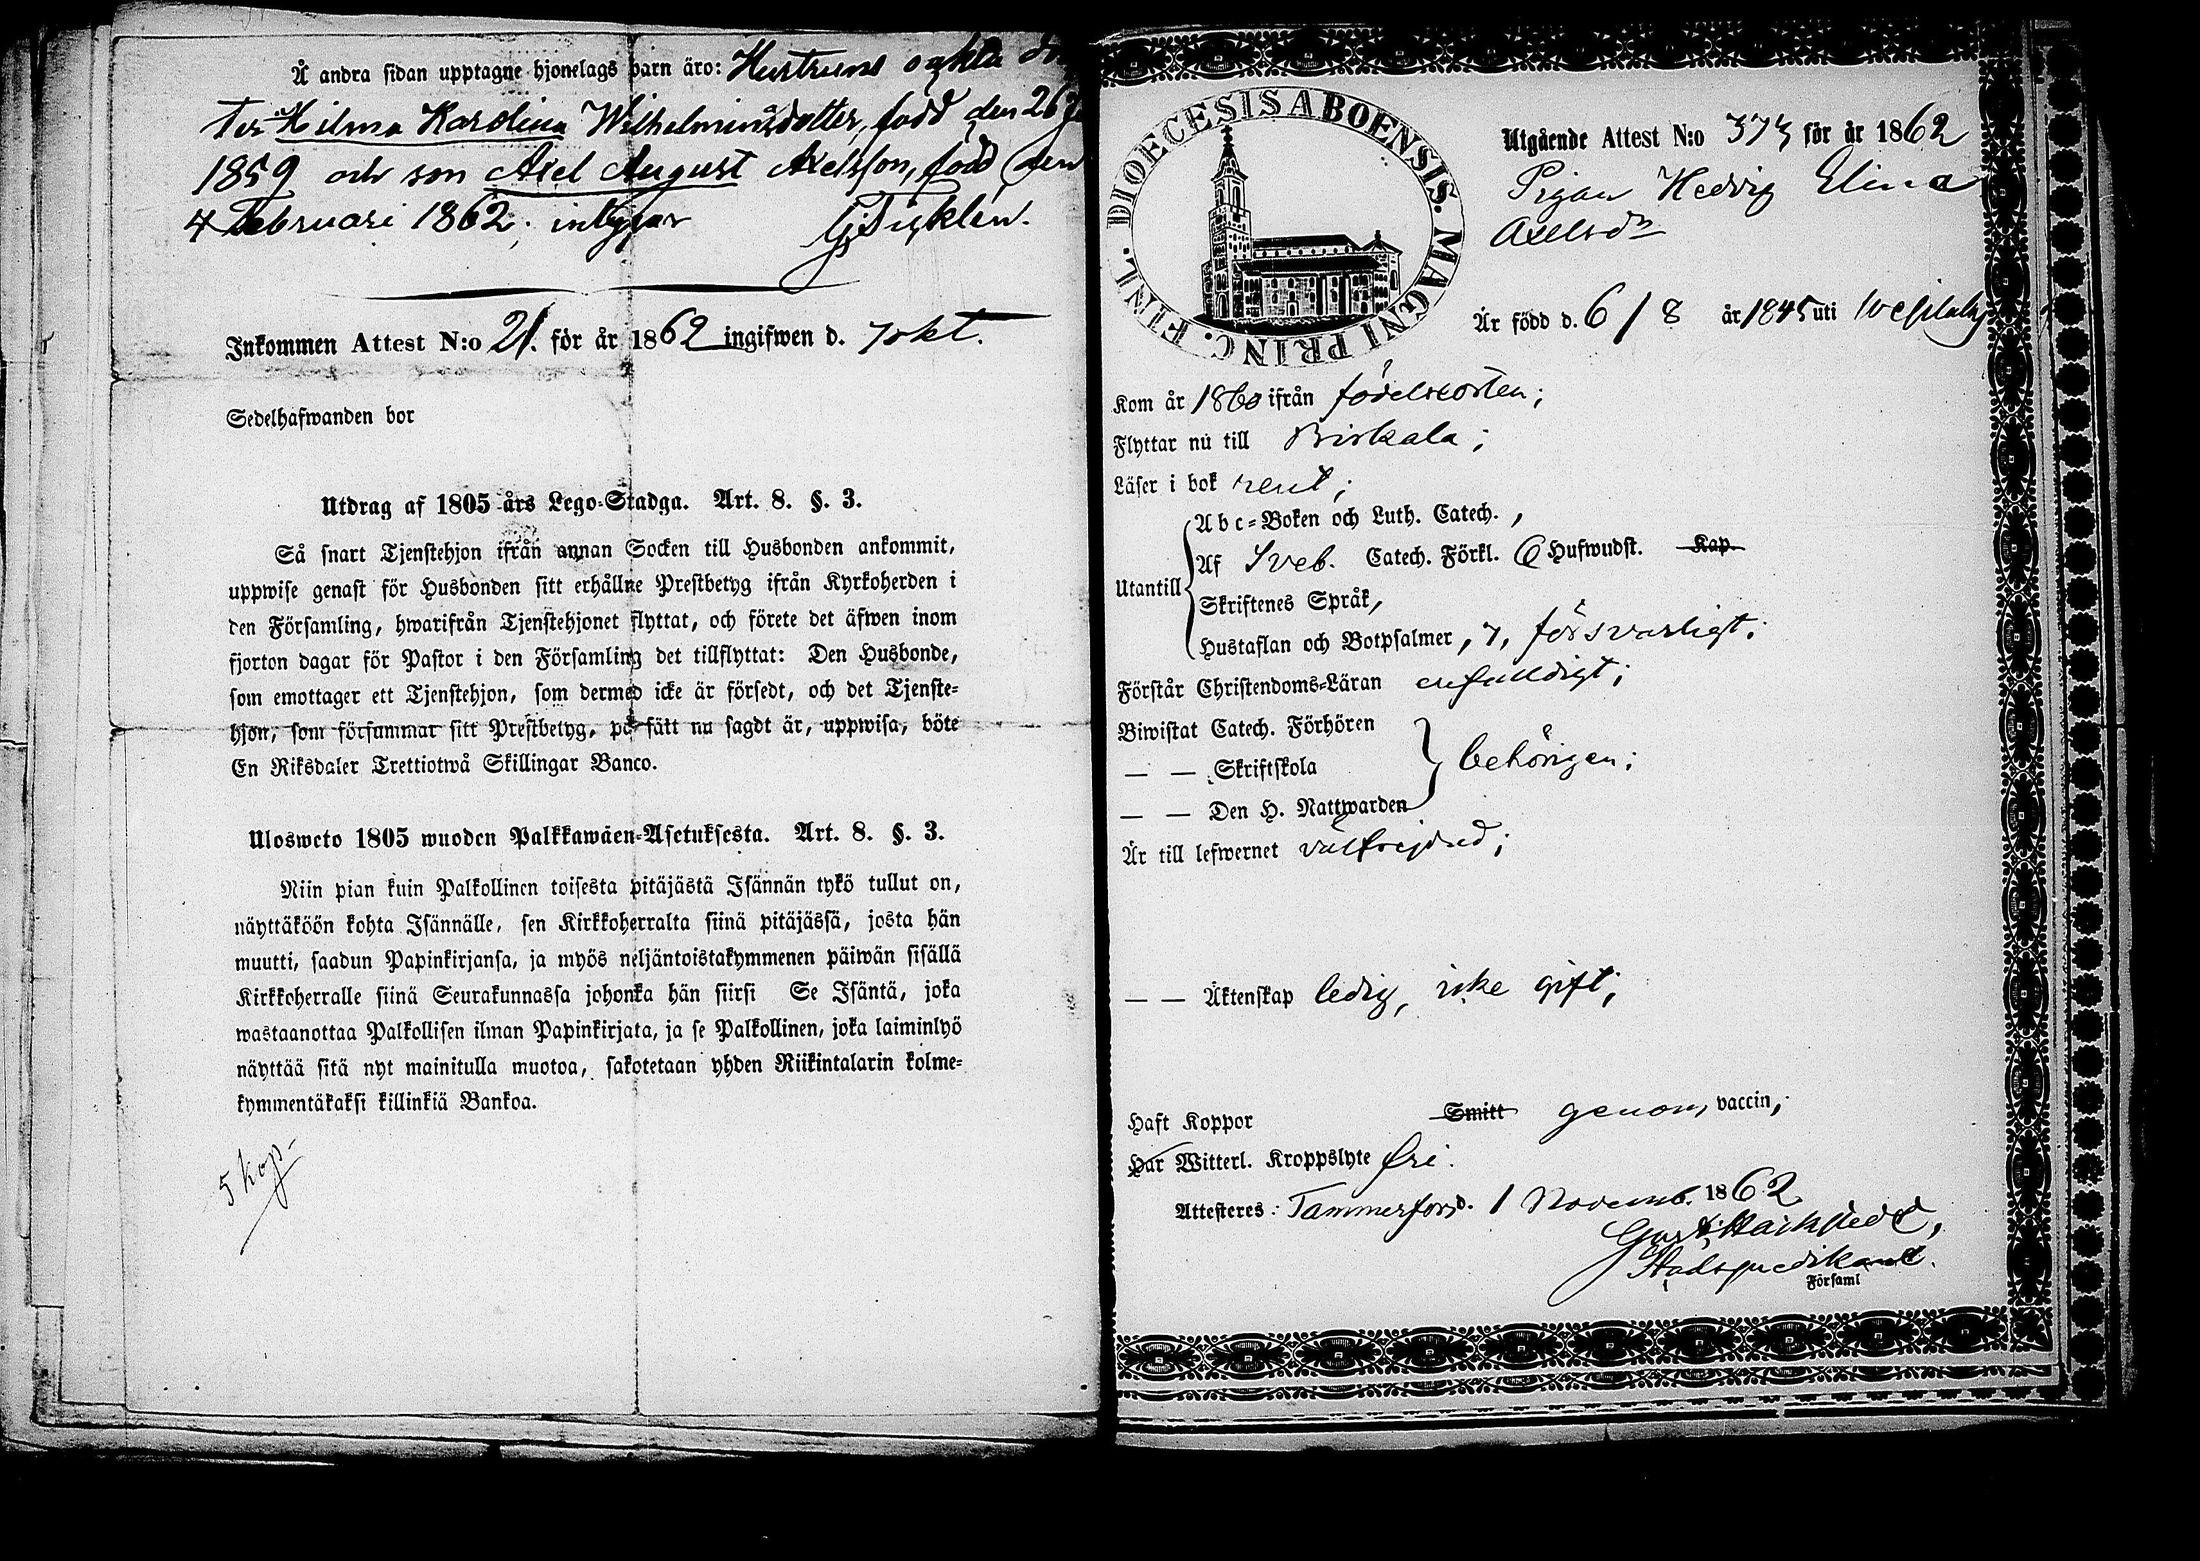 Å andra sidan upptagne hjonelags barn äro: Hustruns oäkta
ter Hilma Karolina Wilhelminsdotter, född den 26
1859 och son Axel August Axelsson, född den
4 Februari 1862; intygar
Inkommen Attest N:o 21. för år 1862 ingifwen d. 7 okt.
Sedelhafwanden bor
Utdrag af 1805 års Lego-Stadga. Art. 8. §. 3.
Så snart Tjenstehjon ifrån annan Socken till Husbonden ankommit,
uppwise genast för Husbonden sitt erhållne Prestbetyg ifrån Kyrkoherden i
den Församling, hwarifrån Tjenstehjonet flyttat, och förete det äfwen inom
fjorton dagar för Pastor i den Församling det tillflyttat: Den Husbonde,
som emottager ett Tjenstehjon, som dermed icke är försedt, och det Tjenste-
hjon, som försummar sitt Prestbetyg, på sätt nu sagdt är, uppwisa, böte
En Riksdaler Trettiotwå Skillingar Banco.
Ulosweto 1805 wuoden Palkkawäen-Asetuksesta. Art. 8. §. 3.
Niin pian kuin Palkollinen toisesta pitäjästä Isännän tykö tullut on,
näyttäköön kohta Isännälle, sen Kirkkoherralta siinä pitäjässä, josta hän
muutti, saadun Papinkirjansa, ja myös neljäntoistakymmenen päiwän sisällä
Kirkkoherralle siinä Seurakunnassa johonka hän siirsi Se Isäntä, joka
wastaanottaa Palkollisen ilman Papinkirjata, ja se Palkollinen, joka laiminlyö
näyttää sitä nyt mainitulla muotoa, sakotetaan yhden Riikintalarin kolme-
kymmentäkaksi killinkiä Bankoa.
5 kop.
DIOECESIS ABOENSIS. MAGNI PRINC. FINL.
Utgående Attest N:o 373 för år 1862
Pigan Hedvig Elina
Axelsdr
Är född d. 6/8 år 1845 uti
Kom år 1860 ifrån födelseorten;
Flyttar nu till Birkala;
Läser i bok rent;
Utantill
Abc-Boken och Luth. Catech.,
Af Sveb. Catech. Förkl. 6 Hufwudst. Kap.
Skriftenes Språk,
Hustaflan och Botpsalmer, 7, försvarligt;
Förstår Christendoms-Läran enfaldigt;
Biwistat Catech. Förhören
— — Skriftskola behörigen;
— — Den H. Nattwarden
Är till lefwernet välfrejdad;
— — Äktenskap ledig, icke gift;
Haft Koppor Smitt genom vaccin;
Har Witterl. Kroppslyte fri.
Attesteres: Tammerfors d. 1 Novemb. 1862
Stadspredikant.
Församl